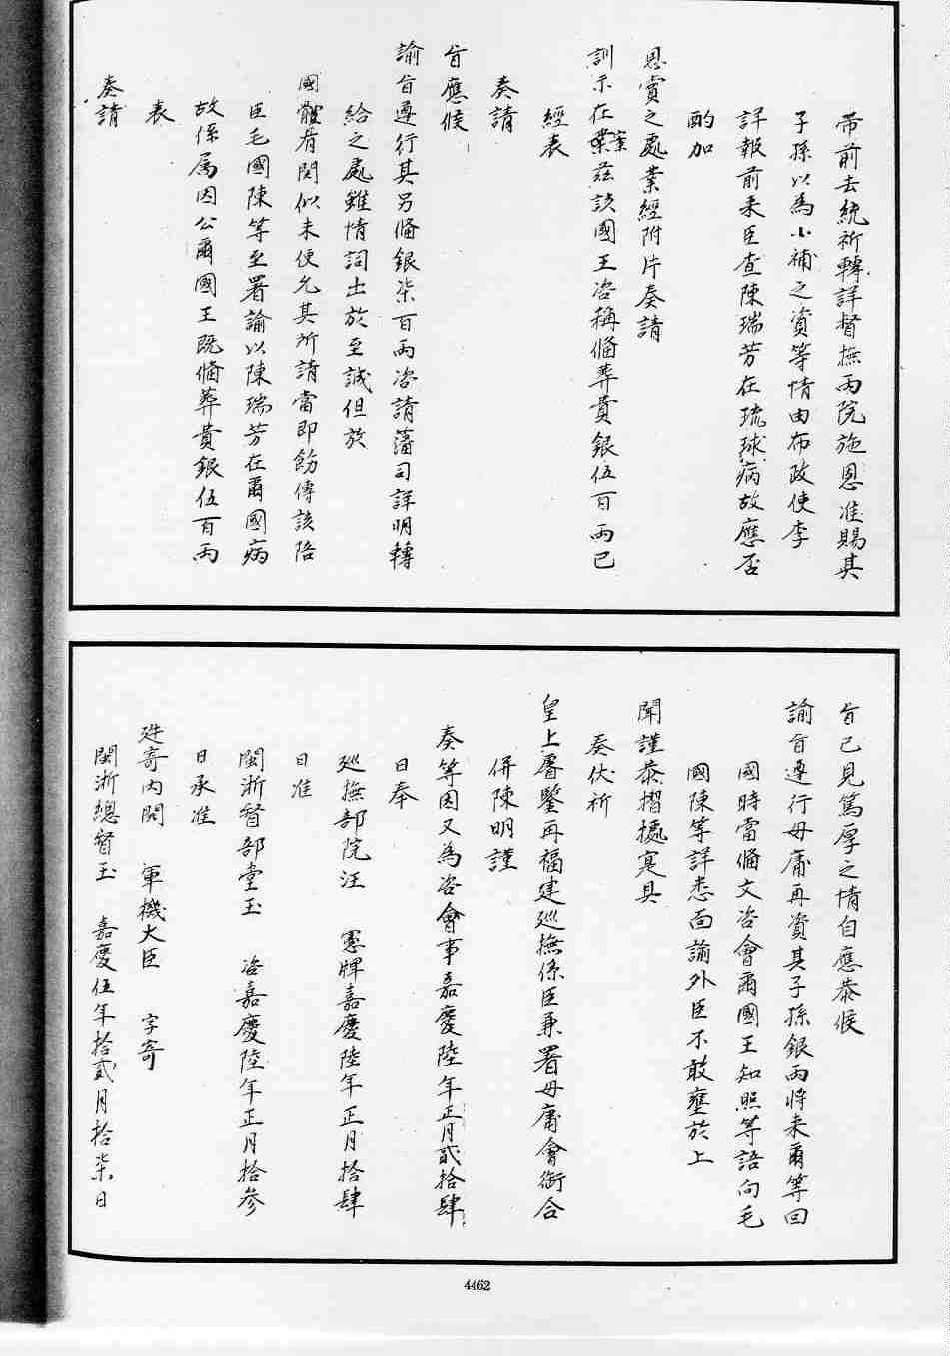 帶前去統祈轉詳督撫兩院施恩准賜其
子孫以為小補之資等情由布政使李
詳報前来臣查陳瑞芳在琉球病故應否
酌加
恩賞之處業經附片奏請
訓示在案茲該國王咨稱俻葬費銀伍百兩已
經表
奏請
旨應候
諭旨遵行其另俻銀柒百兩咨請藩司詳明轉
給之處雖情詞出於至誠但於
國體有関似未便允其所請當即飭傳該陪
臣毛國陳等至署諭以陳瑞芳在爾國病
故係属因公爾國王既俻葬費銀伍百兩
表
奏請
旨已見篤厚之情自應恭候
諭旨遵行毋庸再資其子孫銀兩將来爾等回
國時當俻文咨會爾國王知照等語向毛
國陳等詳悉面諭外臣不敢壅於上
聞謹恭摺據寔具
奏伏祈
皇上睿鑒再福建廵撫係臣兼署毋庸會銜合
併陳明謹
奏等因又為咨會事嘉慶陸年正月貳拾肆
日奉
廵撫部院汪 憲牌嘉慶陸年正月拾肆
日准
閩浙督部堂玉 咨嘉慶陸年正月拾参
日承准
廷寄内閣 軍機大臣 字寄
閩浙總督玉 嘉慶伍年拾貳月拾柒日
4462